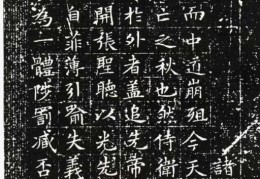 諸
而中道崩殂今天
亡之秋也然侍衛
於外者蓋追先帝
開張聖聽以光先
自菲薄引喻失義
為一體陟罰臧否